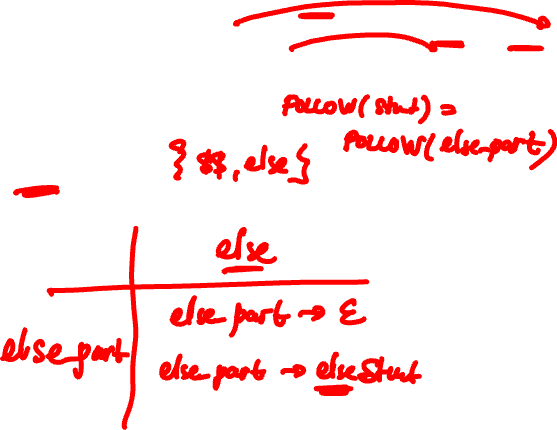 FOLLOW(stmt) =
FOLLOW(else_part)
{ $$, else }
else
else_part → ε
else_part
else_part → else stmt